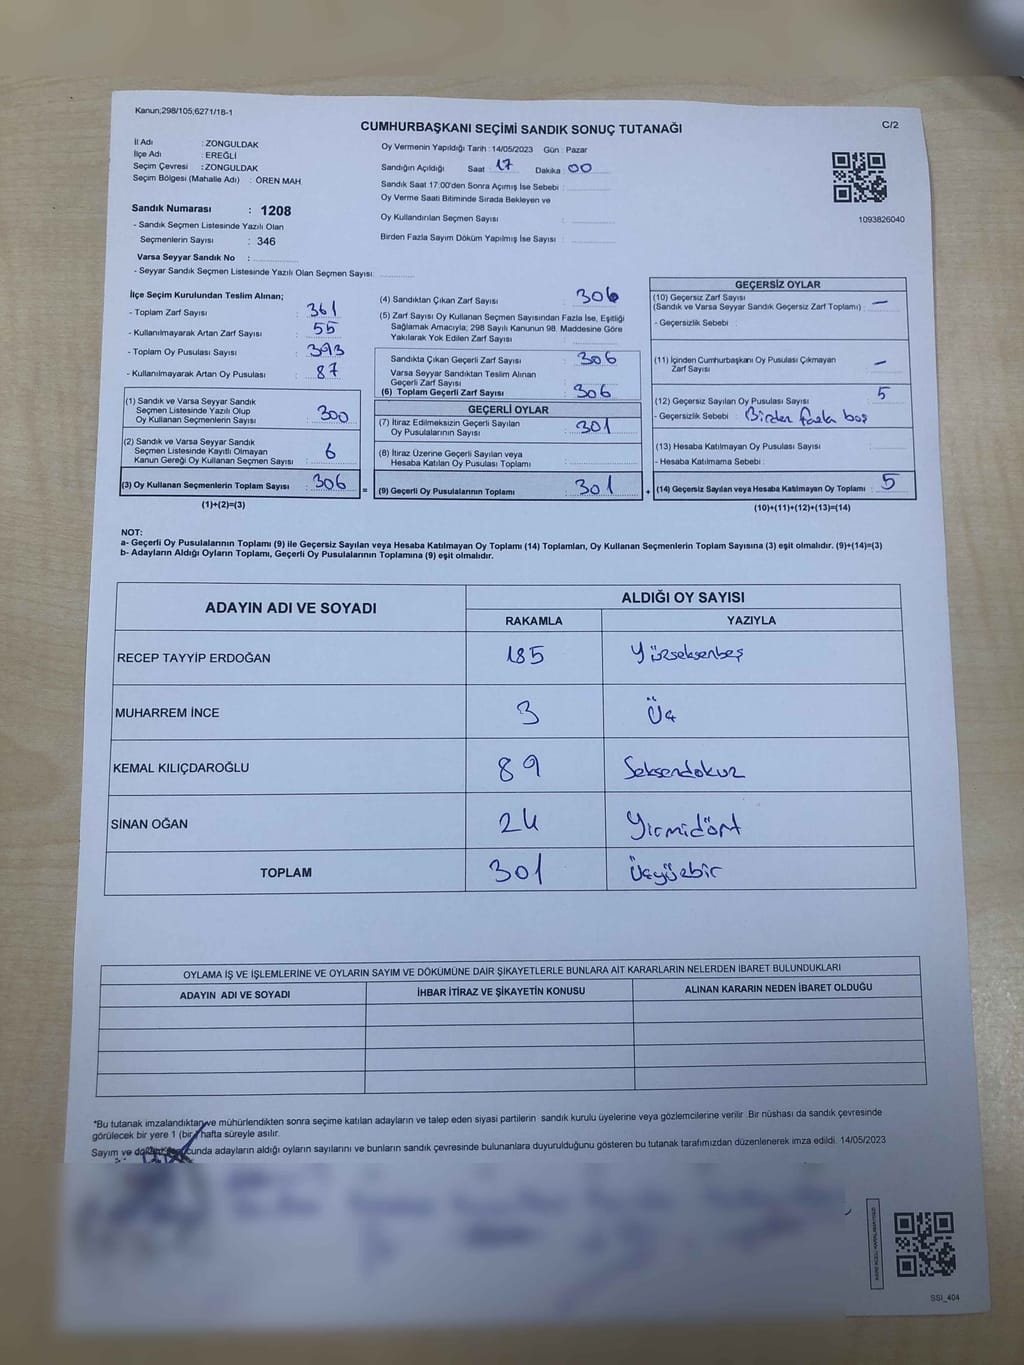 Kanun;298/105;6271/18-1
CUMHURBAŞKANI SEÇİMİ SANDIK SONUÇ TUTANAĞI
C/2
İl Adı : ZONGULDAK
İlçe Adı : EREĞLİ
Seçim Çevresi : ZONGULDAK
Seçim Bölgesi (Mahalle Adı) : ÖREN MAH
Sandık Numarası : 1208
- Sandık Seçmen Listesinde Yazılı Olan
Seçmenlerin Sayısı : 346
Varsa Seyyar Sandık No :
- Seyyar Sandık Seçmen Listesinde Yazılı Olan Seçmen Sayısı:
Oy Vermenin Yapıldığı Tarih : 14/05/2023 Gün : Pazar
Sandığın Açıldığı Saat 17 Dakika 00
Sandık Saat 17:00'den Sonra Açımış İse Sebebi :
Oy Verme Saati Bitiminde Sırada Bekleyen ve
Oy Kullandırılan Seçmen Sayısı :
Birden Fazla Sayım Döküm Yapılmış İse Sayısı :
1093826040
İlçe Seçim Kurulundan Teslim Alınan;
- Toplam Zarf Sayısı : 361
- Kullanılmayarak Artan Zarf Sayısı : 55
- Toplam Oy Pusulası Sayısı : 393
- Kullanılmayarak Artan Oy Pusulası : 87
(1) Sandık ve Varsa Seyyar Sandık
Seçmen Listesinde Yazılı Olup
Oy Kullanan Seçmenlerin Sayısı : 300
(2) Sandık ve Varsa Seyyar Sandık
Seçmen Listesinde Kayıtlı Olmayan
Kanun Gereği Oy Kullanan Seçmen Sayısı : 6
(3) Oy Kullanan Seçmenlerin Toplam Sayısı : 306
(1)+(2)=(3)
(4) Sandıktan Çıkan Zarf Sayısı : 306
(5) Zarf Sayısı Oy Kullanan Seçmen Sayısından Fazla İse, Eşitliği
Sağlamak Amacıyla; 298 Sayılı Kanunun 98. Maddesine Göre
Yakılarak Yok Edilen Zarf Sayısı :
Sandıkta Çıkan Geçerli Zarf Sayısı : 306
Varsa Seyyar Sandıktan Teslim Alınan
Geçerli Zarf Sayısı :
(6) Toplam Geçerli Zarf Sayısı : 306
GEÇERLİ OYLAR
(7) İtiraz Edilmeksizin Geçerli Sayılan
Oy Pusulalarının Sayısı : 301
(8) İtiraz Üzerine Geçerli Sayılan veya
Hesaba Katılan Oy Pusulası Toplamı :
= (9) Geçerli Oy Pusulalarının Toplamı : 301 +
GEÇERSİZ OYLAR
(10) Geçersiz Zarf Sayısı
(Sandık ve Varsa Seyyar Sandık Geçersiz Zarf Toplamı) : —
- Geçersizlik Sebebi :
(11) İçinden Cumhurbaşkanı Oy Pusulası Çıkmayan
Zarf Sayısı : —
(12) Geçersiz Sayılan Oy Pusulası Sayısı : 5
- Geçersizlik Sebebi : Birden fazla boş
(13) Hesaba Katılmayan Oy Pusulası Sayısı :
- Hesaba Katılmama Sebebi :
(14) Geçersiz Sayılan veya Hesaba Katılmayan Oy Toplamı : 5
(10)+(11)+(12)+(13)=(14)
NOT:
a- Geçerli Oy Pusulalarının Toplamı (9) ile Geçersiz Sayılan veya Hesaba Katılmayan Oy Toplamı (14) Toplamları, Oy Kullanan Seçmenlerin Toplam Sayısına (3) eşit olmalıdır. (9)+(14)=(3)
b- Adayların Aldığı Oyların Toplamı, Geçerli Oy Pusulalarının Toplamına (9) eşit olmalıdır.
ADAYIN ADI VE SOYADI
ALDIĞI OY SAYISI
RAKAMLA YAZIYLA
RECEP TAYYİP ERDOĞAN 185 Yüzseksenbeş
MUHARREM İNCE 3 Üç
KEMAL KILIÇDAROĞLU 89 Seksendokuz
SİNAN OĞAN 24 Yirmidört
TOPLAM 301 Üçyüzbir
OYLAMA İŞ VE İŞLEMLERİNE VE OYLARIN SAYIM VE DÖKÜMÜNE DAİR ŞİKAYETLERLE BUNLARA AİT KARARLARIN NELERDEN İBARET BULUNDUKLARI
ADAYIN ADI VE SOYADI İHBAR İTİRAZ VE ŞİKAYETİN KONUSU ALINAN KARARIN NEDEN İBARET OLDUĞU
*Bu tutanak imzalandıktan ve mühürlendikten sonra seçime katılan adayların ve talep eden siyasi partilerin sandık kurulu üyelerine veya gözlemcilerine verilir. Bir nüshası da sandık çevresinde
görülecek bir yere 1 (bir) hafta süreyle asılır.
Sayım ve döküm sonucunda adayların aldığı oyların sayılarını ve bunların sandık çevresinde bulunanlara duyurulduğunu gösteren bu tutanak tarafımızdan düzenlenerek imza edildi. 14/05/2023
SSI_404